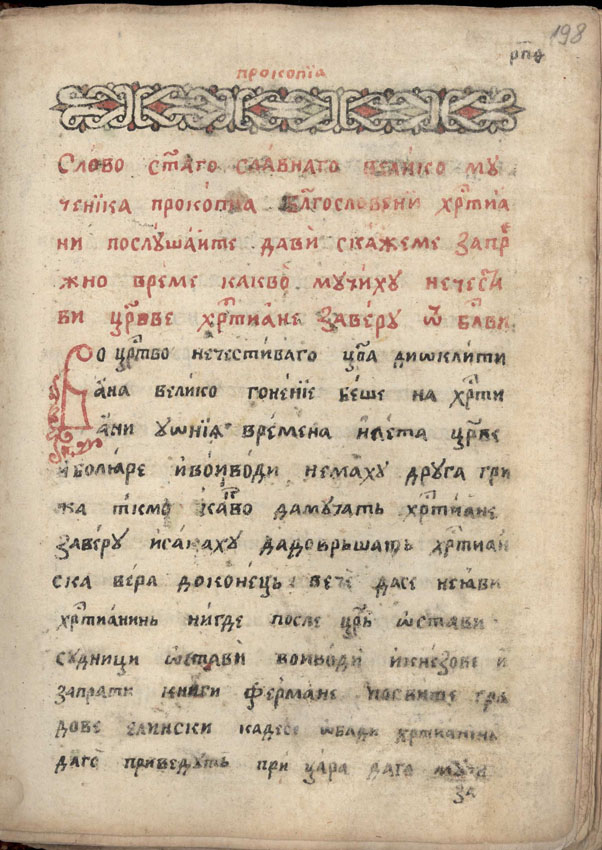 198
рп҃ѳ
прокопїа
Сло́во ст҃аго сла́внаго вели́ко му
чени́ка проко́пиа бл҃гослове́ни хр҃тиа
ни послꙋ́шаите дави̇̀ ска́жеме запр҆е
жно вре́ме какво̀ мꙋ́чихꙋ нечес҆та
ви цр҃ве хр҃тиа́не заве́рꙋ ѿ бл҃ви
Во цр҃тво нече́стиваго цр҃а диѡклити
а́на велико гоне́нїе бе́ше на хр҃ти
а́ни ꙋѡнїѧ времена и лета цр҃ве
и болꙗре и во́иводи не́махꙋ дрꙋга гри
жа ткмо ка́во да мꙋчать хр҃тиане
заве́рꙋ и сакахꙋ да доврьшать хр҃тиан
ска вера доконе́ць вече дасе неꙗви
хр҃тиа́нинь нигде после цр҃ь ѡста́ви
сꙋ́дници ѡста́ви воиводи и кне́зове и
запрати книги ферма́не по свите гра
дове е́лински кадесе ѡба́ди хр҃тиа́нинь
да го приведꙋть при ца́ра да го мꙋчи
за